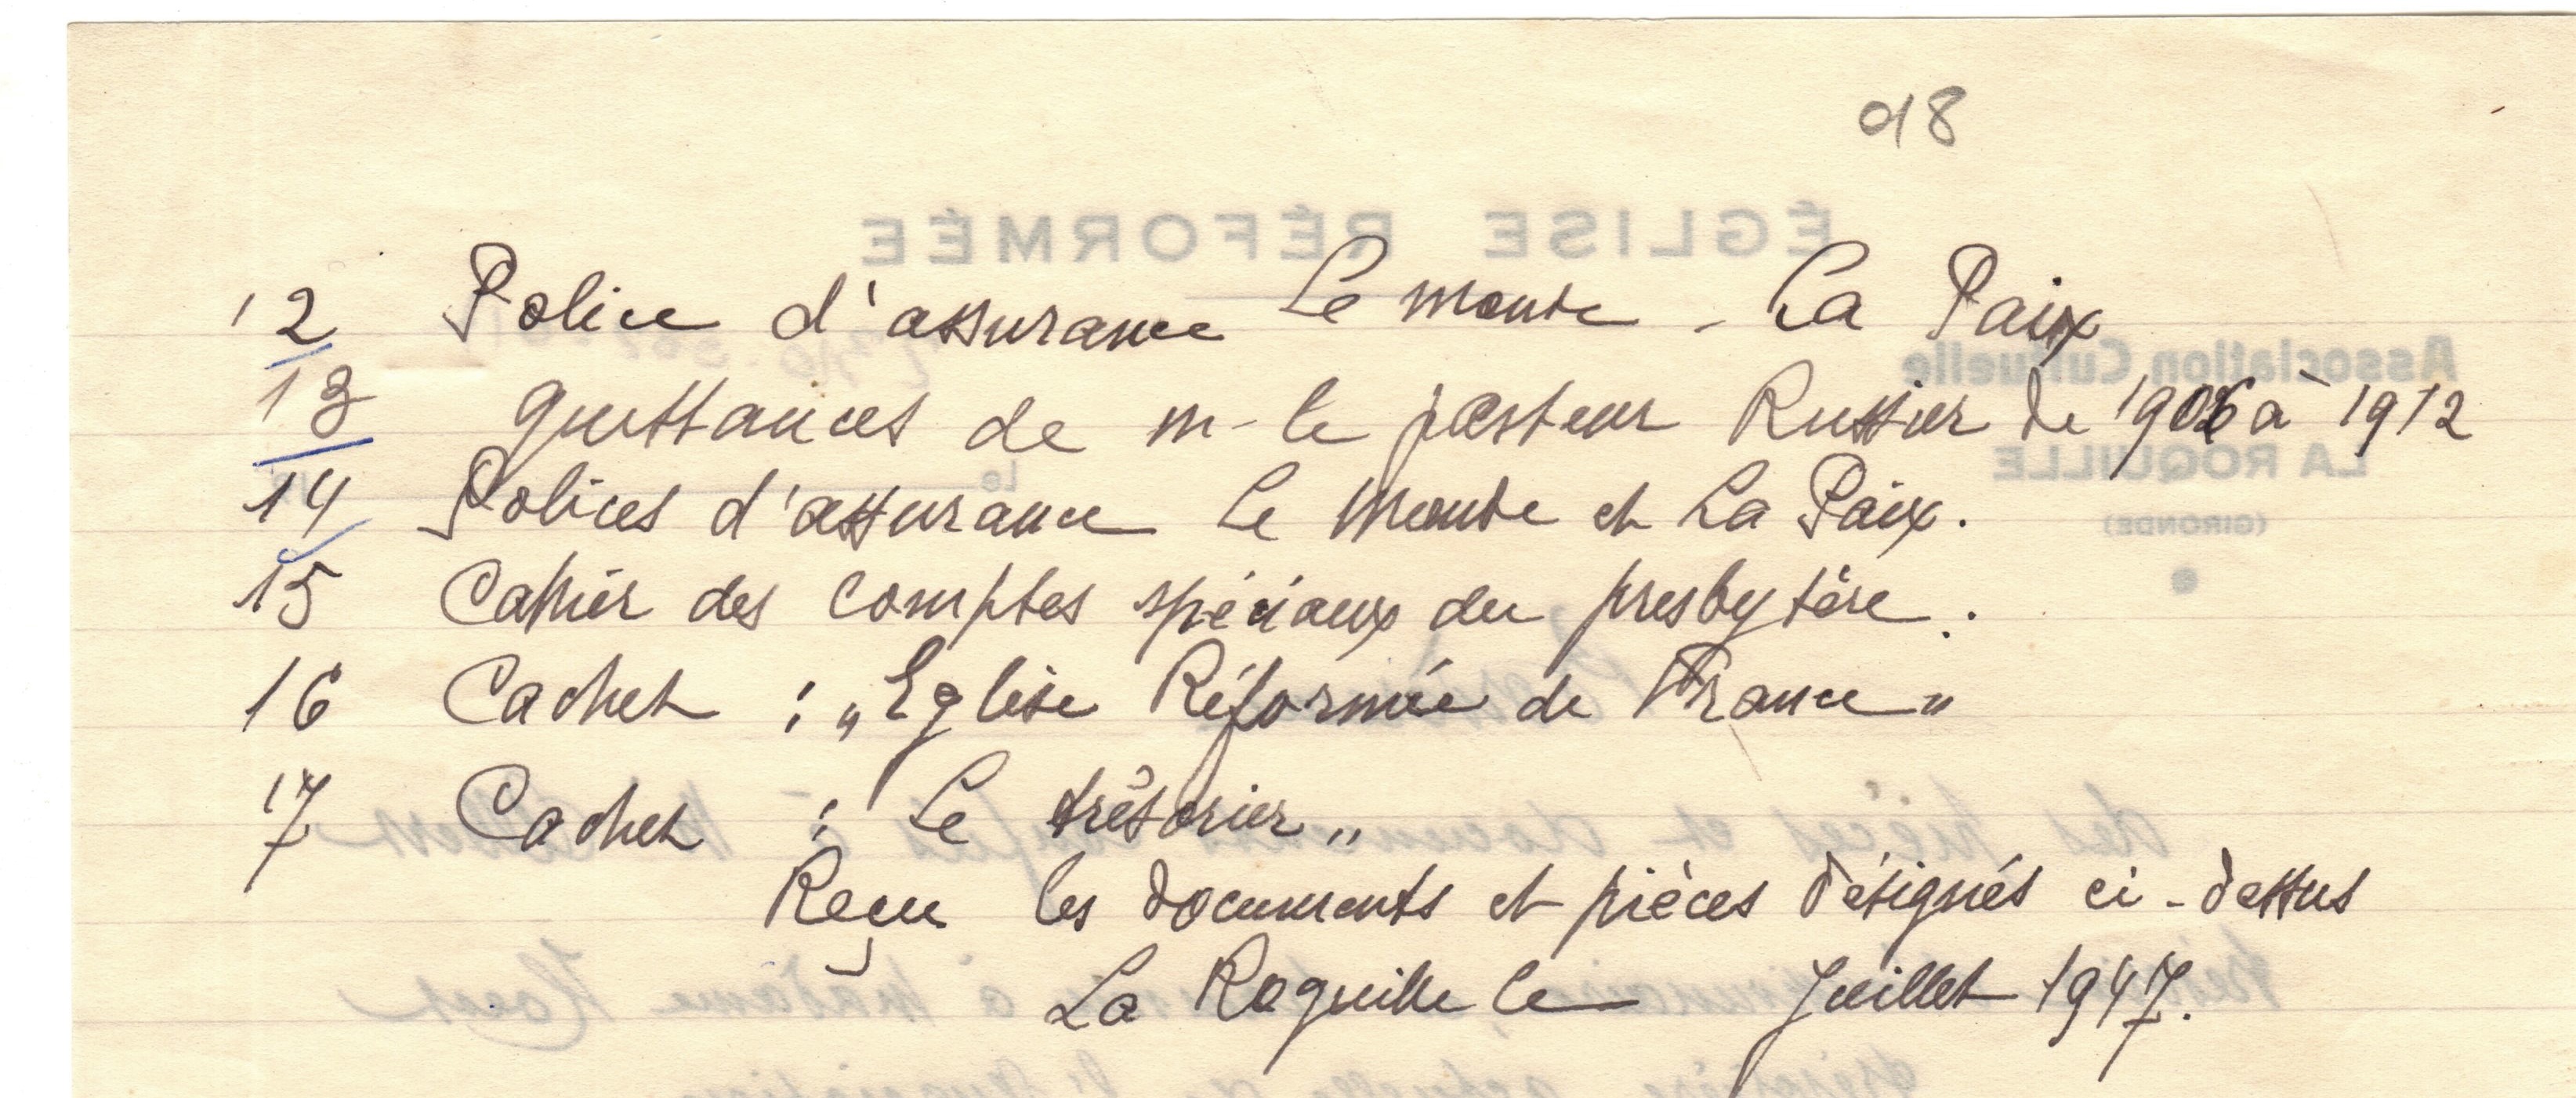 018
12 Police d'assurance Le Monde - La Paix
13 quittances de m. le pasteur Russier de 1906 à 1912
14 Polices d'assurance Le Monde et La Paix.
15 Cahier des comptes spéciaux du presbytère.
16 Cachet : „Eglise Réformée de France"
17 Cachet : Le trésorier"
Reçu les documents et pièces désignés ci-dessus
La Roquille le Juillet 1947.
ÉGLISE RÉFORMÉE
Association Cultuelle
LA ROQUILLE
(GIRONDE)
le